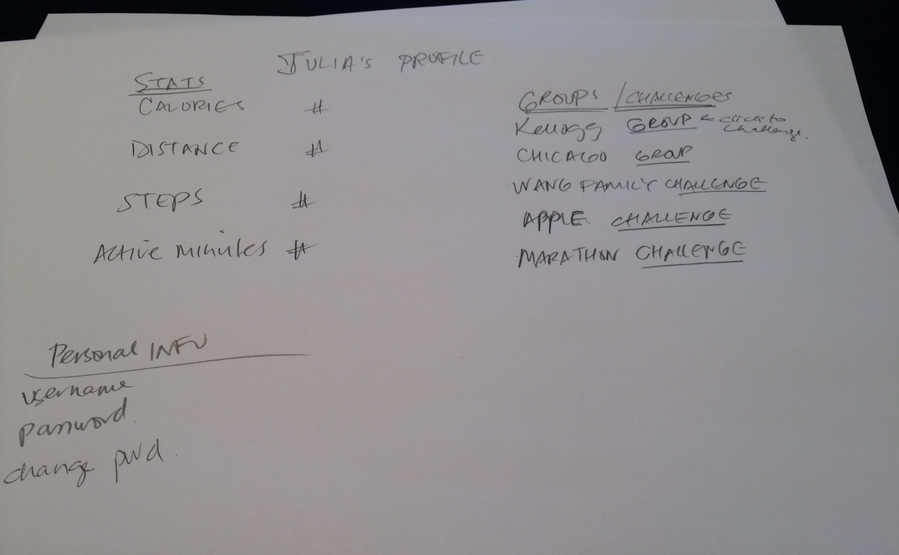 JULIA's PROFILE
STATS
CALORIES #
DISTANCE #
STEPS #
Active Minutes #
GROUPS / CHALLENGES
Kellogg GROUP ← click to
challenge.
CHICAGO GROUP
WANG FAMILY CHALLENGE
APPLE CHALLENGE
MARATHON CHALLENGE
Personal INFO
username
password.
change pwd.